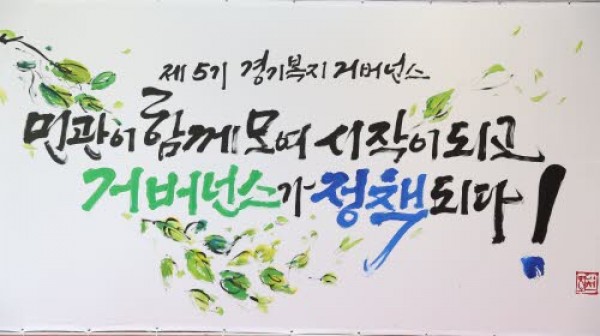 제 5기 경기복지 거버넌스
민관이 함께 모여 시작이 되고
거버넌스가 정책되다!